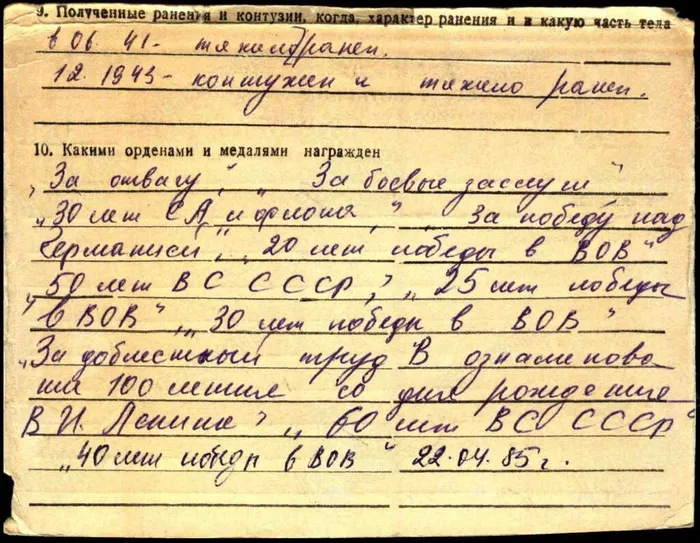 9. Полученные ранения и контузии, когда, характер ранения и в какую часть тела
в 06. 41 - тяжело ранен.
12. 1943 - контужен и тяжело ранен.
10. Какими орденами и медалями награжден
„За отвагу", „За боевые заслуги"
„30 лет СА и флота", „За победу над
Германией", „20 лет победы в ВОВ"
„50 лет ВС СССР", „25 лет победы
в ВОВ", „30 лет победы в ВОВ"
„За доблестный труд В ознаменова
ние 100 летия со дня рождения
В И. Ленина", „60 лет ВС СССР"
„40 лет победы в ВОВ" 22.04.85 г.